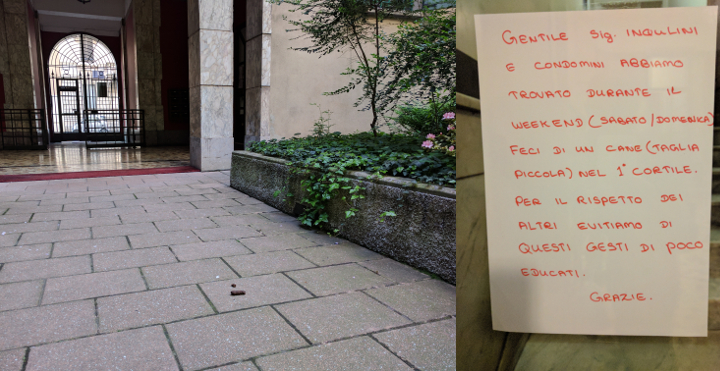 GENTILE SIG. INQULINI
E CONDOMINI ABBIAMO
TROVATO DURANTE IL
WEEKEND (SABATO/DOMENICA)
FECI DI UN CANE (TAGLIA
PICCOLA) NEL 1° CORTILE.
PER IL RISPETTO DEI
ALTRI EVITIAMO DI
QUESTI GESTI DI POCO
EDUCATI.
GRAZIE.